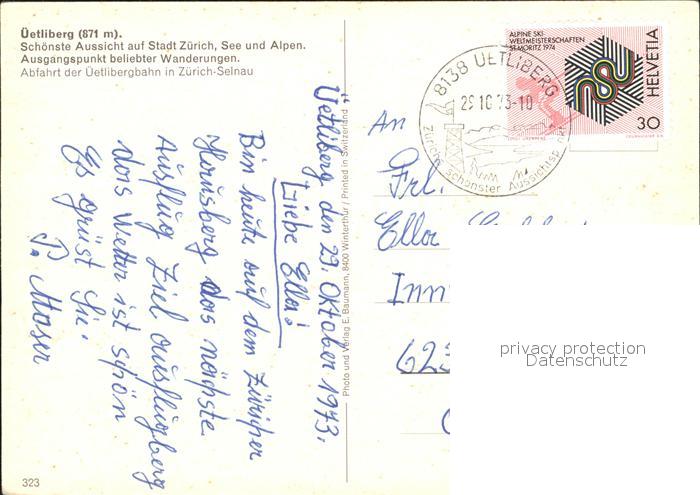 Üetliberg (871 m).
Schönste Aussicht auf Stadt Zürich, See und Alpen.
Ausgangspunkt beliebter Wanderungen.
Abfahrt der Üetlibergbahn in Zürich-Selnau
Uetliberg den 29. Oktober 1973.
Liebe Ella!
Bin heute auf dem Züricher
Hausberg das nächste
Ausflug Ziel
das Wetter ist schön
Es grüst Sie.
P. Moser
323
Photo und Verlag E. Baumann, 8400 Winterthur / Printed in Switzerland
ALPINE SKI-
WELTMEISTERSCHAFTEN
ST. MORITZ 1974
HELVETIA
30
8138 UETLIBERG
29.10.73-10
Zürichs schönster Aussichtsp
An
Frl.
Ella
Inn
623
privacy protection
Datenschutz